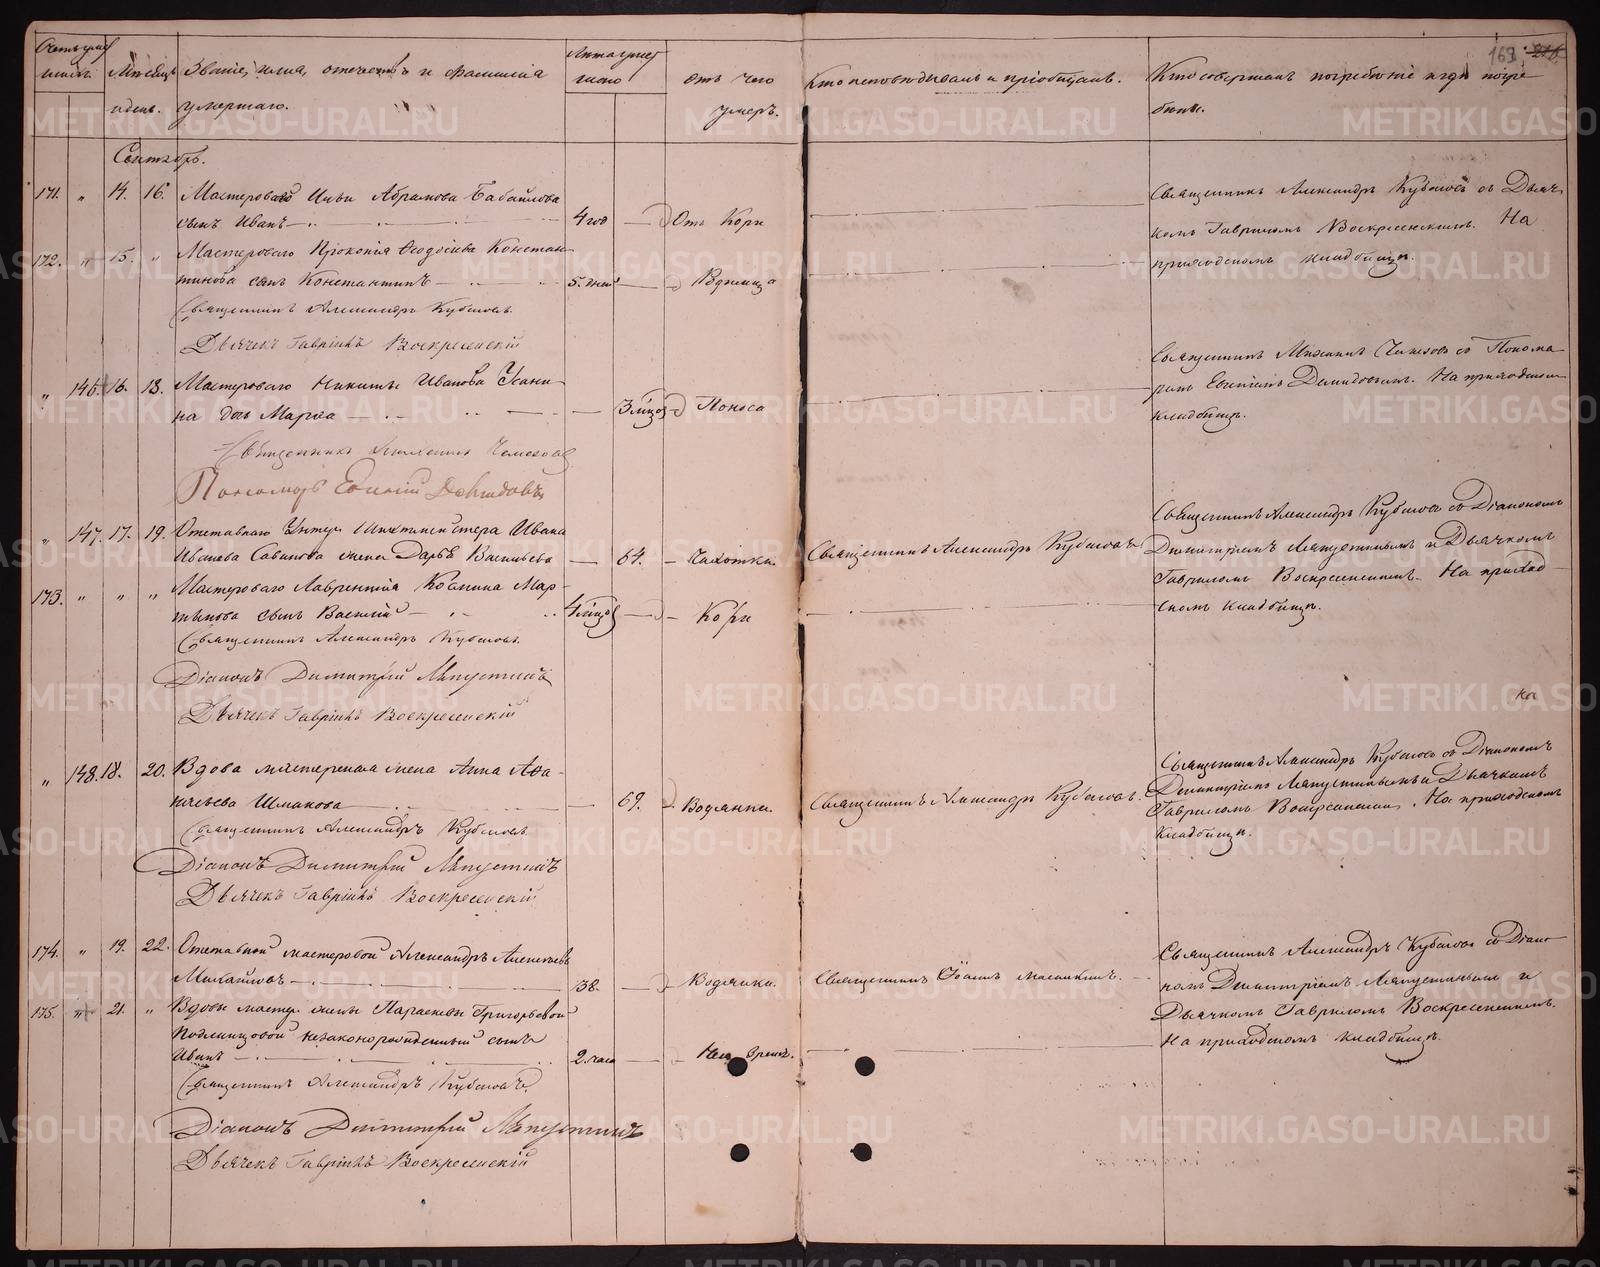 Мѣсяцъ Званіе, имя, отечество и фамилія
отъ чего
Кто исповѣдывалъ и пріобщалъ.
Кто совершалъ погребеніе и гдѣ погре
и день. умершаго.
умеръ.
бены.
169
Сентябрь.
171. " 14. 16. Мастероваго Ильи Абрамова Бабайлова
сынъ Иванъ 4 год Отъ Кори
Священникъ Александръ Кубасовъ съ Дьяч
комъ Гавріиломъ Воскресенскимъ. На
приходскомъ кладбищѣ.
172. " 15. " Мастероваго Прокопія Ѳеодосіева Констан
тинова сынъ Константинъ 5. дней Родимца
Священникъ Александръ Кубасовъ.
Дьячекъ Гавріилъ Воскресенскій
" 146. 16. 18. Мастероваго Никиты Иванова
на дочь Марѳа 3 мѣсяц Поноса
Священникъ
съ Понома
ремъ Евгеніемъ Демидовымъ. На приходскомъ
кладбищѣ.
Священникъ
Пономарь Евгеній Демидовъ
" 147. 17. 19. Отставнаго Унтеръ Ивана
Иванова Савинова жена Дарья Васильева 64. Чахотки.
Священникъ Александръ Кубасовъ
Священникъ Александръ Кубасовъ съ Діакономъ
Димитріемъ и Дьячкомъ
Гавріиломъ Воскресенскимъ. На приход
скомъ кладбищѣ.
173. " " " Мастероваго Лаврентія Мар
тынова сынъ Василій 4 мѣсяц Кори
Священникъ Александръ Кубасовъ.
Діаконъ Димитрій
Дьячекъ Гавріилъ Воскресенскій
На
" 148. 18. 20. Вдова мастерская жена Анна Аѳа
насьева Шмакова 69. Водянки.
Священникъ Александръ Кубасовъ.
Священникъ Александръ Кубасовъ съ Діакономъ
Димитріемъ и Дьячкомъ
Гавріиломъ Воскресенскимъ. На приходскомъ
кладбищѣ.
Священникъ Александръ Кубасовъ
Діаконъ Димитрій
Дьячекъ Гавріилъ Воскресенскій
174. " 19. 22. Отставной мастеровой Александръ Алексѣевъ
Михайловъ 38. Водянки.
Священникъ Іоаннъ
Священникъ Александръ Кубасовъ съ Діако
номъ Димитріемъ и
Дьячкомъ Гавріиломъ Воскресенскимъ.
На приходскомъ кладбищѣ.
175. " 21. " Вдовы мастер. жены Параскевы Григорьевой
незаконорожденный сынъ
Иванъ 2. часа
Священникъ Александръ Кубасовъ.
Діаконъ Димитрій
Дьячекъ Гавріилъ Воскресенскій
METRIKI.GASO-URAL.RU